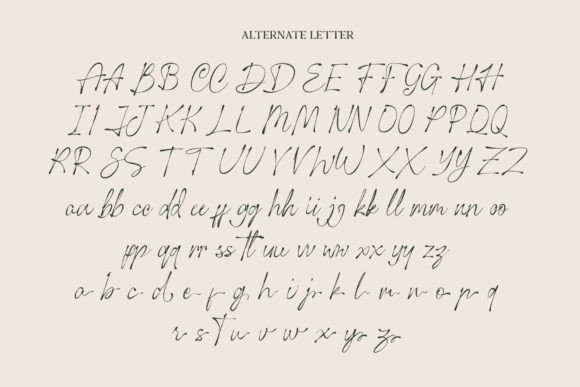 ALTERNATE LETTER
AA BB CC DD EE FF GG HH
II JJ KK LL MM NN OO PP QQ
RR SS TT UU VV WW XX YY ZZ
aa bb cc dd ee ff gg hh ii jj kk ll mm nn oo
pp qq rr ss tt uu vv ww xx yy zz
a b c d e f g h i j k l m n o p q
r s t u v w x y z